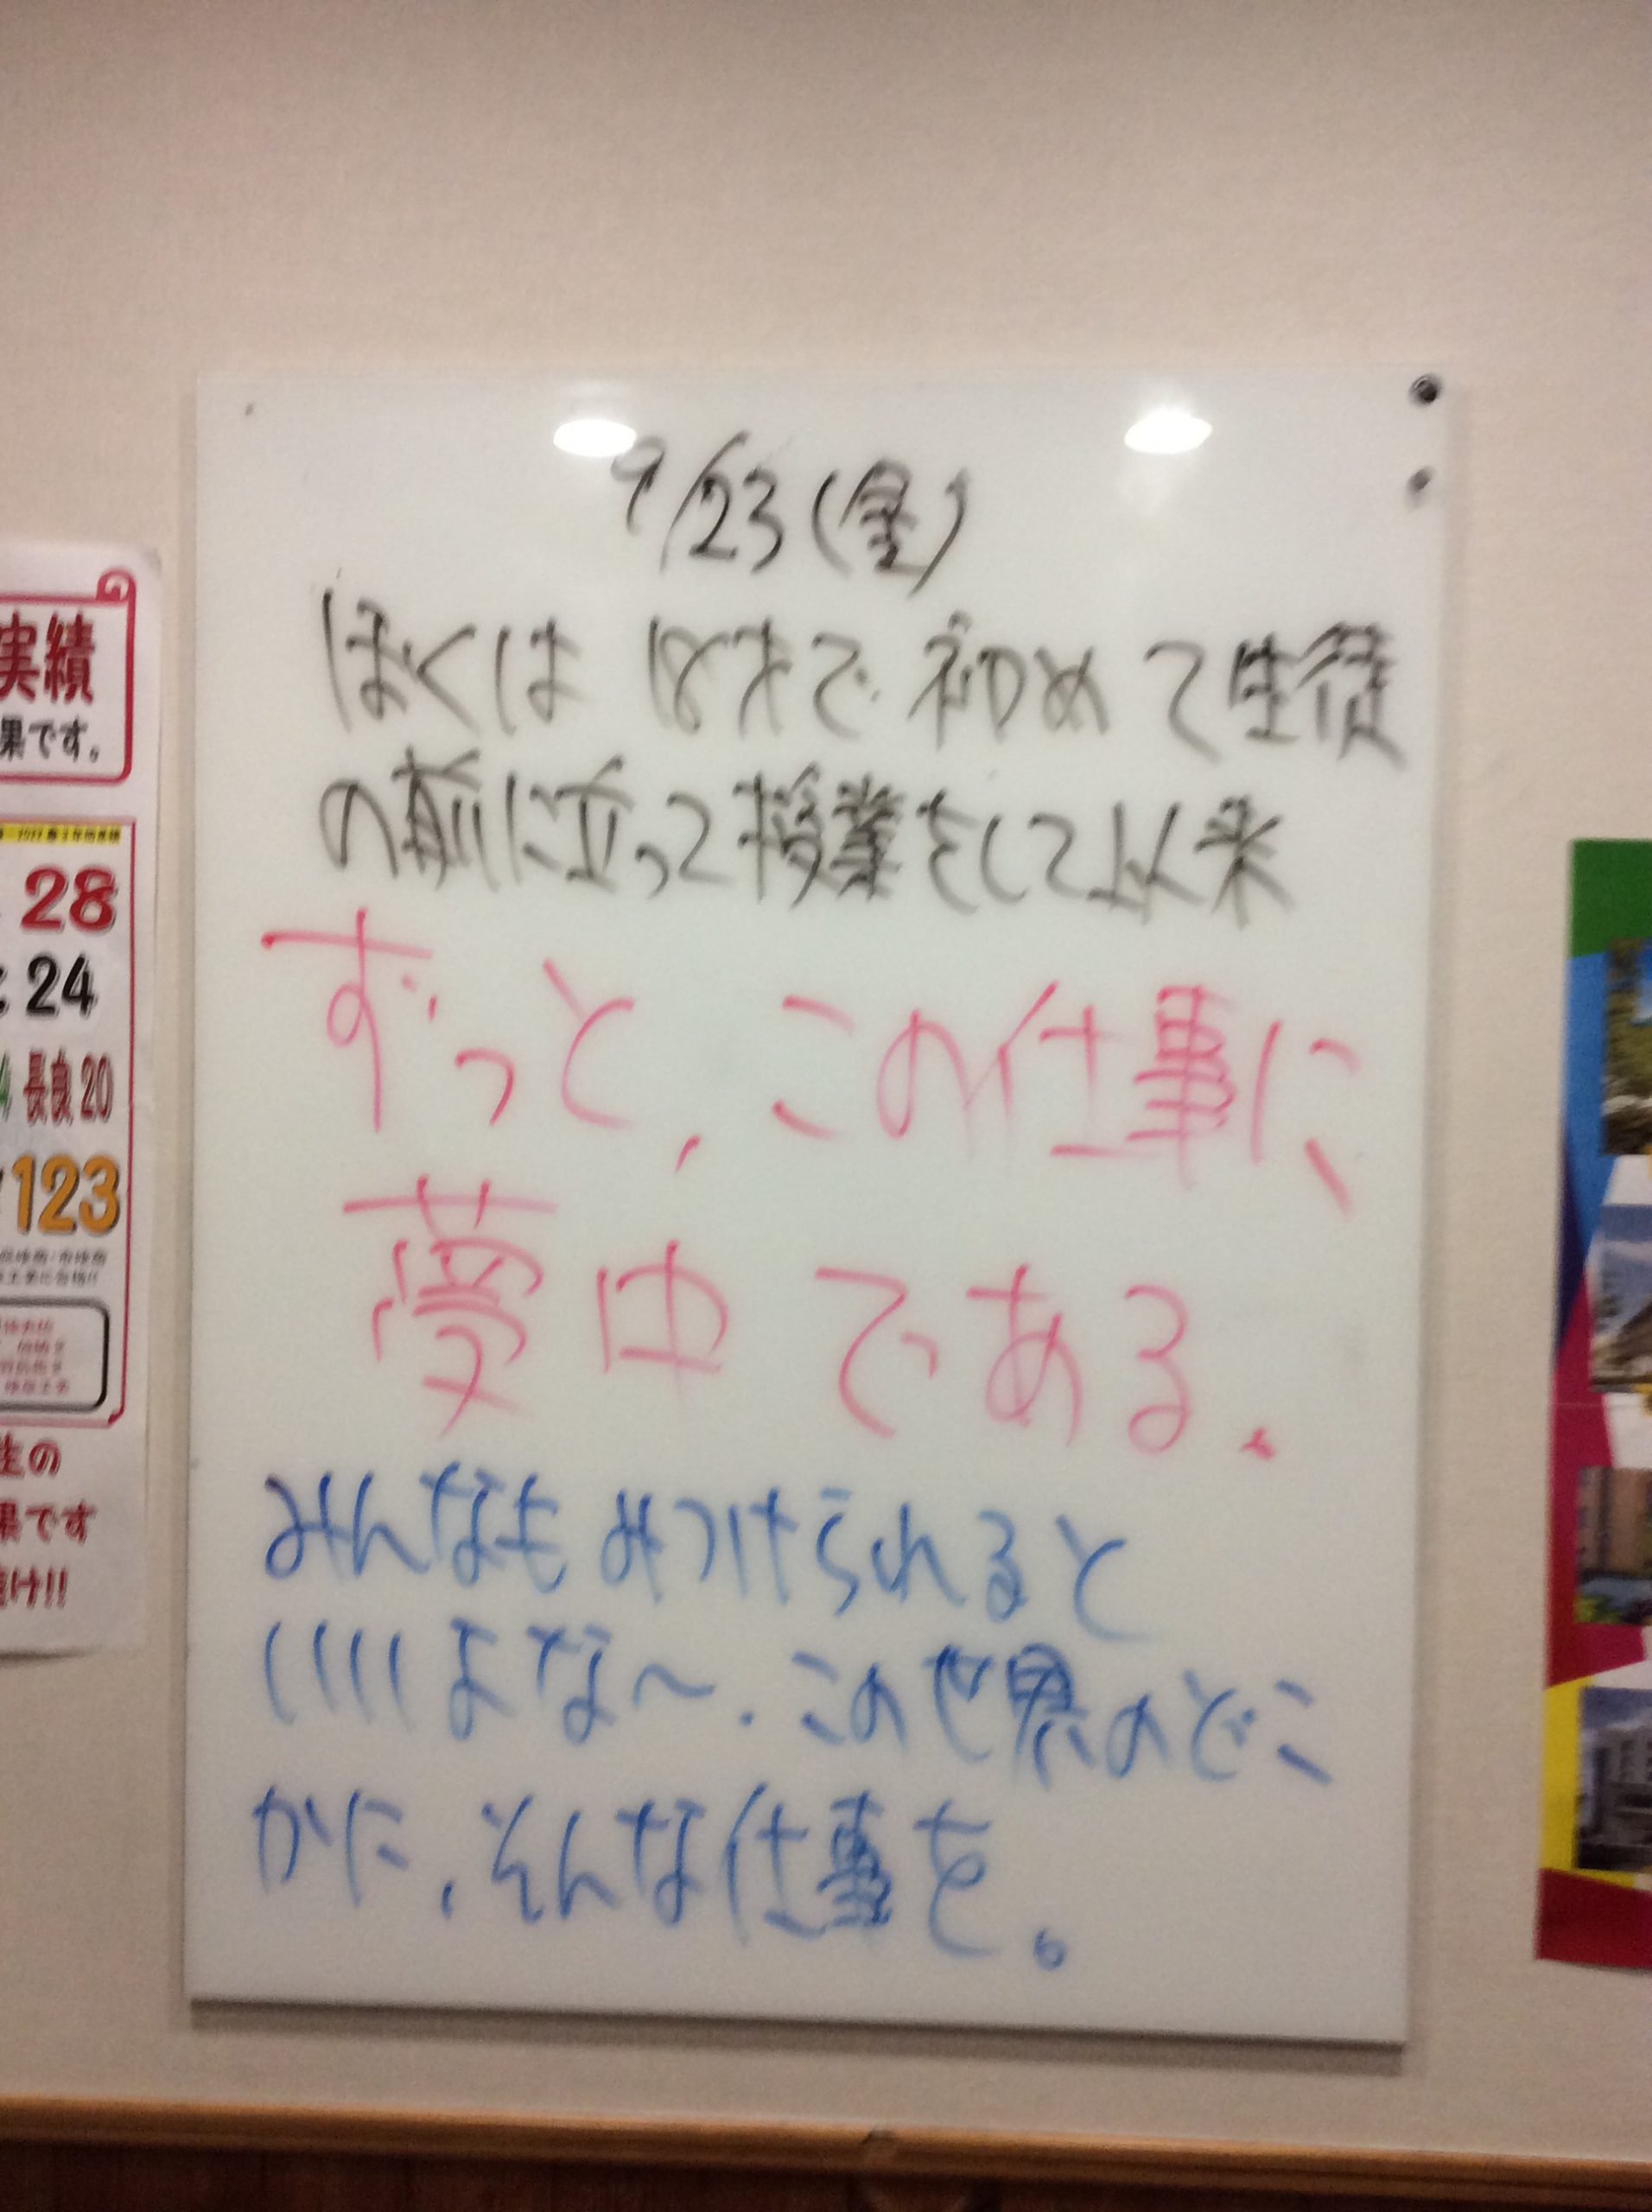 9/23(金)
ぼくは 18才で 初めて生徒
の前に立って授業をして以来
ずっと、この仕事に、
夢中である。
みんなもみつけられると
いいよな〜。この世界のどこ
かに、そんな仕事を。
実績
果です。
28
24
長良20
123
生の
果です